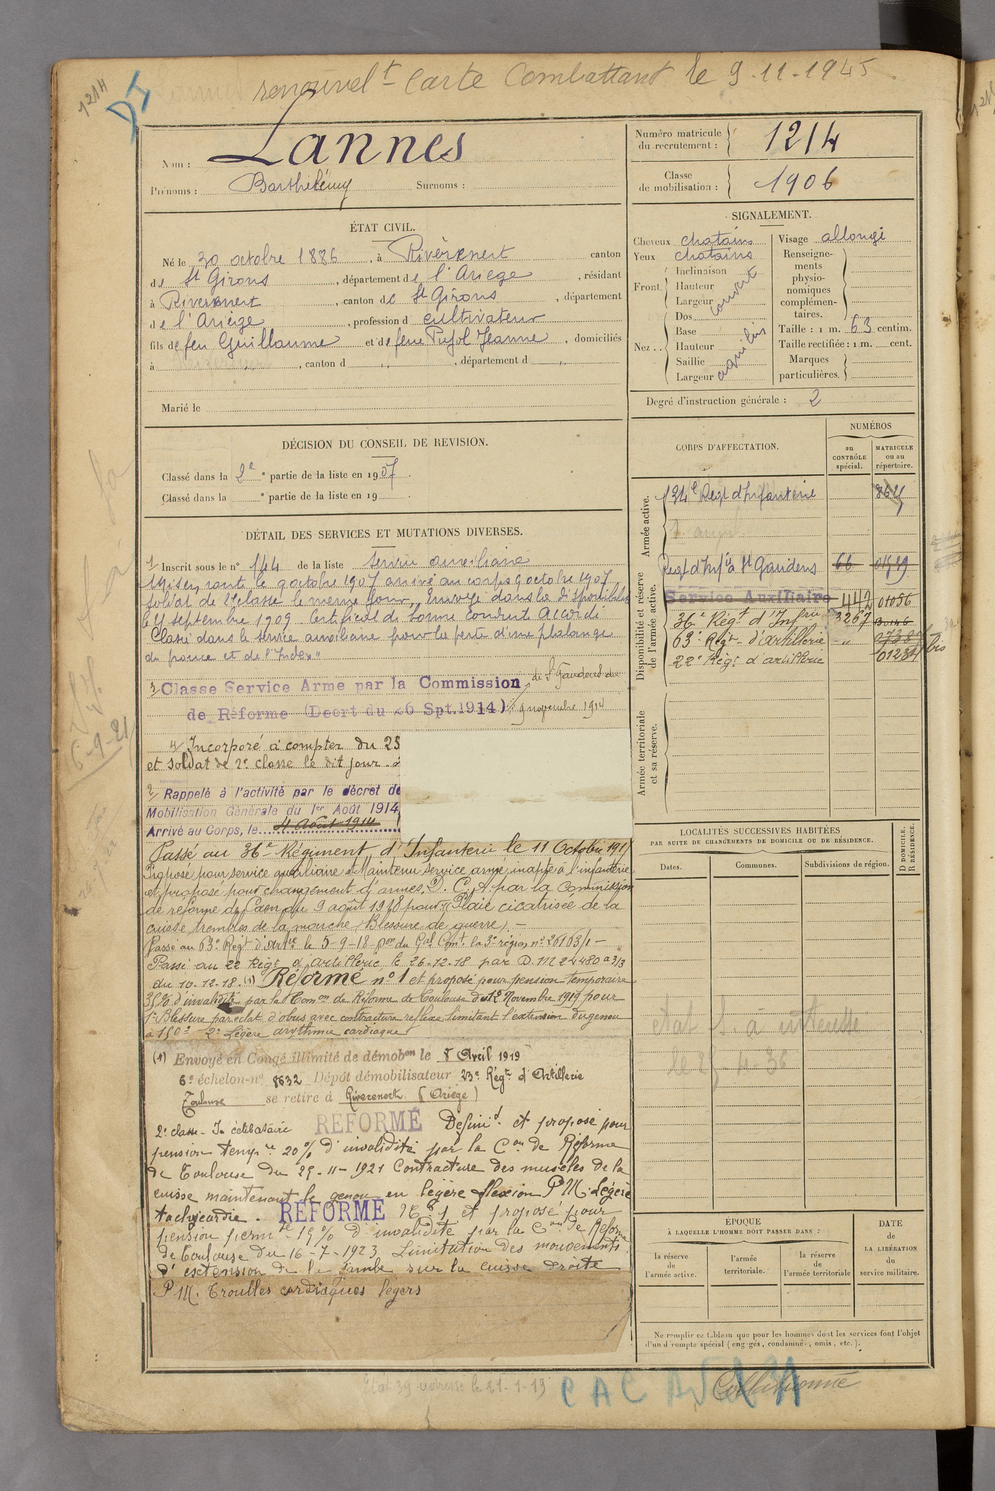 1214
renouvelt - Carte Combattant le 9.11.1945
Nom : Lannes
Prénoms : Barthélémy Surnoms :
Numéro matricule du recrutement : 1214
Classe de mobilisation : 1906
ÉTAT CIVIL.
Né le 30 octobre 1886, à Rivèrenert canton
de St Girons, département de l'Ariège, résidant
à Rivèrenert, canton de St Girons, département
de l'Ariège, profession d cultivateur
fils de feu Guillaume et de feue Pujol Jeanne, domiciliés
à , canton d , département d
Marié le
SIGNALEMENT.
Cheveux chatains
Yeux chatains
Front. Inclinaison
Hauteur
Largeur
couvert
Nez.. Dos
Base
Hauteur
Saillie
Largeur
Visage allongé
Renseignements physionomiques complémentaires.
Taille : 1 m. 63 centim.
Taille rectifiée : 1 m. cent.
Marques particulières.
Degré d'instruction générale : 2
DÉCISION DU CONSEIL DE REVISION.
Classé dans la 2e partie de la liste en 1907.
Classé dans la partie de la liste en 19
DÉTAIL DES SERVICES ET MUTATIONS DIVERSES.
Inscrit sous le n° 144 de la liste Service auxiliaire
Mis en route le 9 octobre 1907 arrivé au corps 9 octobre 1907
soldat de 2e classe le même jour. Envoyé dans la disponibilité
le septembre 1909. Certificat de bonne conduite Accordé
Classé dans le service auxiliaire pour la perte d'une phalange
du pouce et de l'Index
3/ Classe Service Arme par la Commission de St Gaudens du
de Réforme (Decrt du 26 Spt. 1914) 9 novembre 1914
4/ Incorporé à compter du 25
et soldat de 2e classe le dit jour.
2/ Rappelé à l'activité par le décret de
Mobilisation Générale du 1er Août 1914
Arrivé au Corps, le 4 Août 1914
Passé au 36e Régiment d'Infanterie le 11 Octobre 191
Proposé pour service auxiliaire et Maintenu service armé inapte à l'infanterie
et proposé pour changement d'armes, D. C. A par la Commission
de réforme de Caen du 9 août 1918 pour Plaie cicatrisée de la
cuisse troubles de la marche (Blessure de guerre). -
Passé au 63e Régt d'Artie le 5-9-18 par du Gal Cmt la 3e région n° 26163/1 -
Passé au 22 Régt d'Artillerie le 26.12.18 par D.M 24480 2/3
du 10.12.18. (1) Réformé n° 1 et proposé pour pension temporaire
% d'invalidité par la Comon de Réforme de Toulouse du 12 Novembre 1919 pour
1° Blessure par éclat d'obus avec contracture réflexe limitant l'extension du genou
à 150° 2° Légère arythmie cardiaque
(1) Envoyé en Congé illimité de démobon le 8 Avril 1919
6e échelon-n° 8632 Dépôt démobilisateur 23e Régt d'Artillerie
Toulouse se retire à Riverenert (Ariège)
2e classe - célibataire RÉFORMÉ Définit. et proposé pour
pension temp. 20% d'invalidité par la Con de Réforme
de Toulouse du 25-11-1921 Contracture des muscles de la
cuisse maintenant le genou en légère flexion P.M. légère
tachycardie. RÉFORMÉ N° 1 et proposé pour
pension permte 15% d'invalidité par la Con de Réforme
de Toulouse du 16-7-1923 Limitation des mouvements
d'extension de la Jambe sur la cuisse droite
P.M. Troubles cardiaques légers
CORPS D'AFFECTATION.
NUMÉROS
au CONTRÔLE spécial.
MATRICULE ou au répertoire.
Armée active.
124e Regt d'Infanterie
Disponibilité et réserve de l'armée active.
Regt d'Infie à St Gaudens 66
Service Auxiliaire
36e Régt d'Infrie 3267
63e Régt d'artillerie
22e Régt d'artillerie
Armée territoriale et sa réserve.
LOCALITÉS SUCCESSIVES HABITÉES
PAR SUITE DE CHANGEMENTS DE DOMICILE OU DE RÉSIDENCE.
Dates. Communes. Subdivisions de région.
D DOMICILE. R RÉSIDENCE.
ÉPOQUE
À LAQUELLE L'HOMME DOIT PASSER DANS :
la réserve de l'armée active.
l'armée territoriale.
la réserve de l'armée territoriale
DATE DE LA LIBÉRATION du service militaire.
Ne remplir ce tableau que pour les hommes dont les services font l'objet
d'un compte spécial (engagés, condamnés, omis, etc.).